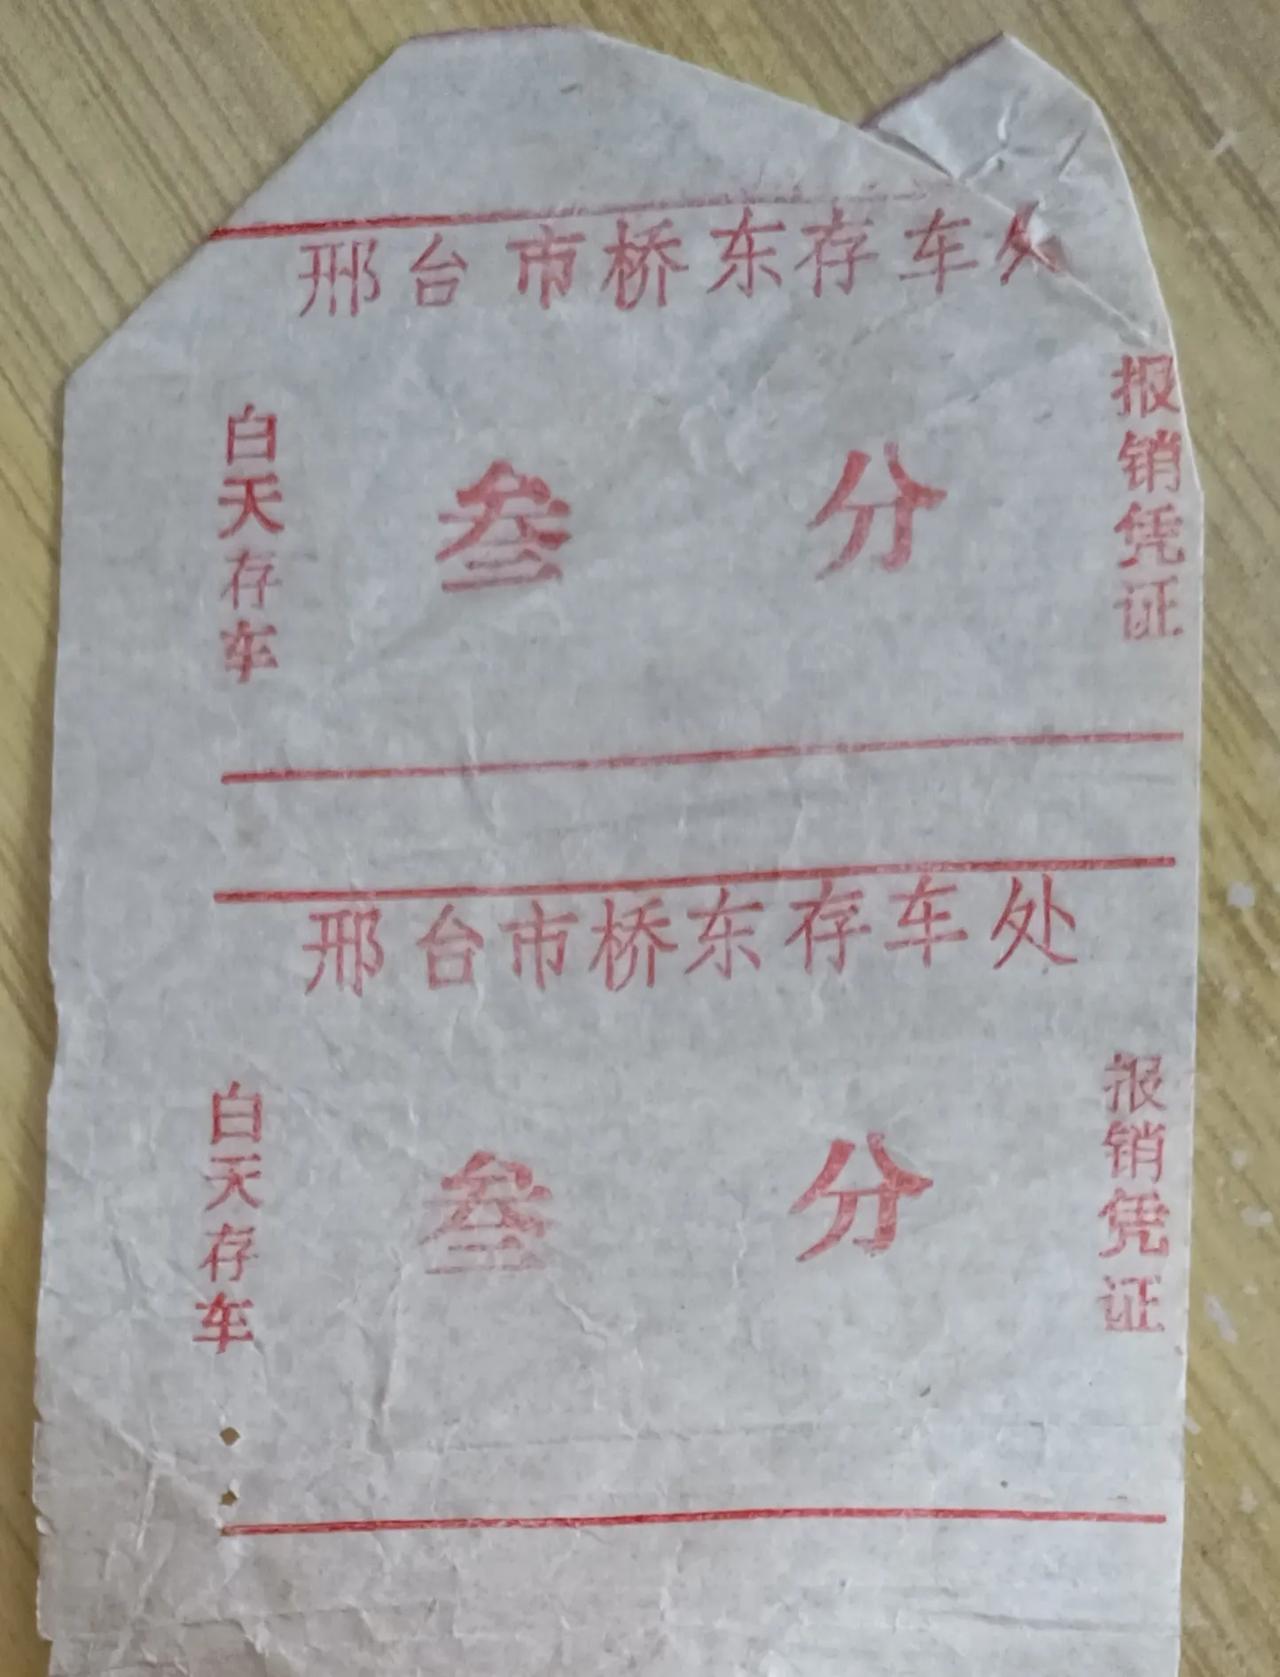 邢台市桥东存车处
白天存车
叁分
报销凭证
邢台市桥东存车处
白天存车
叁分
报销凭证